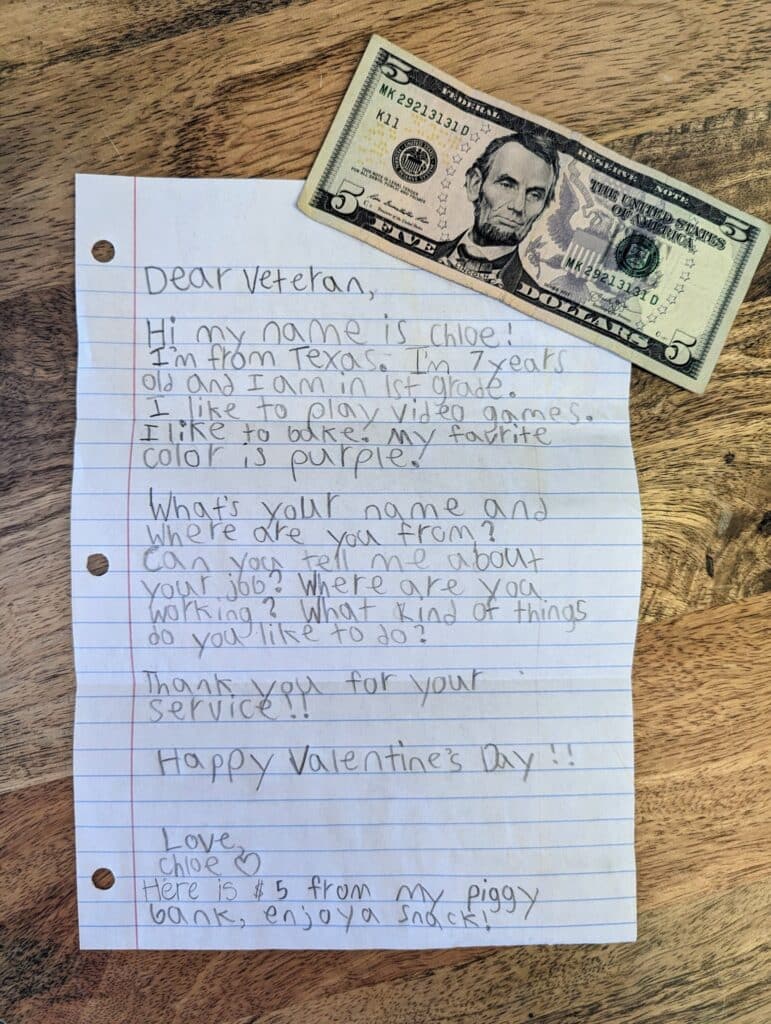 5 FEDERAL RESERVE NOTE 5
MK 29213131 D
K11
THE UNITED STATES
OF AMERICA
THIS NOTE IS LEGAL TENDER
FOR ALL DEBTS, PUBLIC AND PRIVATE
MK 29213131 D
5 FIVE DOLLARS 5
Dear Veteran,
Hi my name is Chloe!
I'm from Texas. I'm 7 years
old and I am in 1st grade.
I like to play video games.
I like to bake. My favrite
color is purple.
What's your name and
where are you from?
Can you tell me about
your job? Where are you
working? What kind of things
do you like to do?
Thank you for your
service!!
Happy Valentine's Day!!
Love,
Chloe ♡
Here is $5 from my piggy
bank, enjoy a snack!